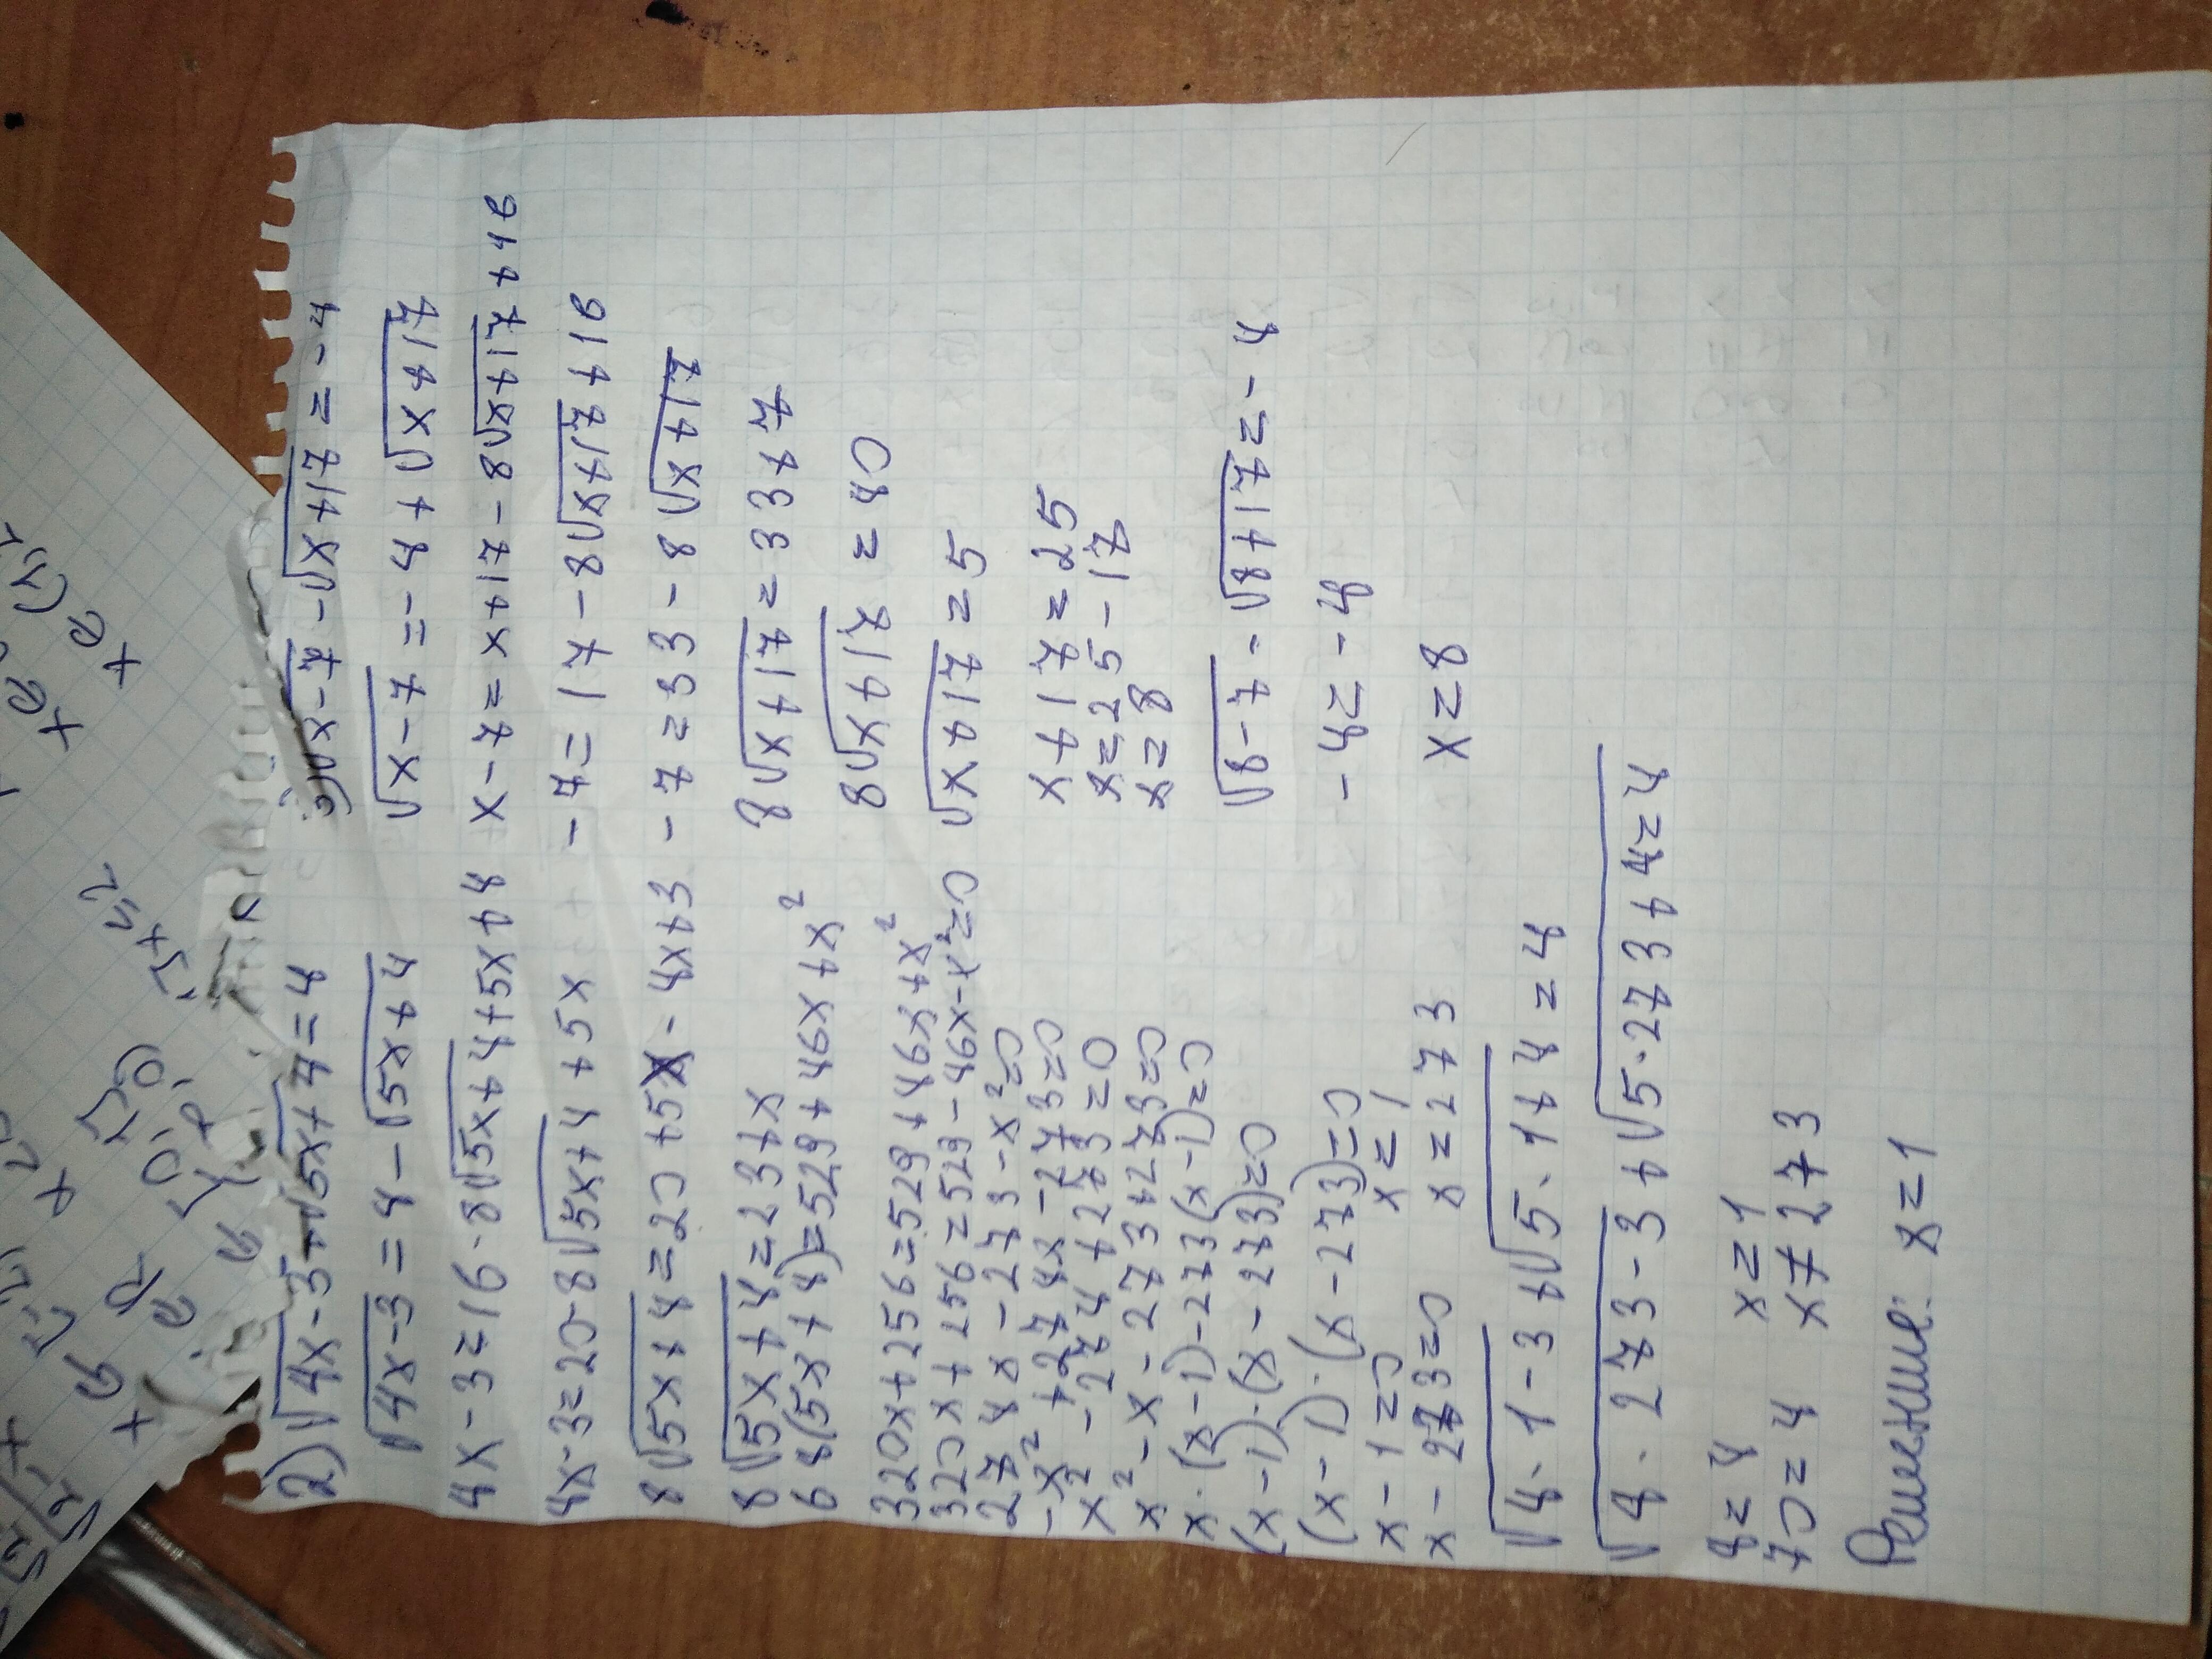 2) √4x-3+√5x+4=4
√4x-3=4-√5x+4
4x-3=16-8√5x+4+5x+4
4x-3=20-8√5x+4+5x
8√5x+4=20+5x-4x+3
8√5x+4=23+x
68(5x+4)=529+46x+x²
320x+256=529+46x+x²
320x+256=529-46x-x²=0
274x-273-x²=0
-x²+274x-273=0
x²-274+273=0
x²-x-273+273=0
x·(x-1)-273(x-1)=0
(x-1)·(x-273)=0
(x-1)·(x-273)=0
x-1=0 x=1
x-273=0 x=273
√4·1-3+√5·1+4=4
√4·273-3+√5·273+4=4
4=4 x=1
70=4 x≠273
Решение: x=1
3)√x-7-√x+17=-4
√x-7=-4+√x+17
x-7=x+17-8√x+17+16
-7=17-8√x+17+16
-7=33-8√x+17
8√x+17=33+7
8√x+17=40
√x+17=5
x+17=25
x=25-17
x=8
√8-7-√8+17=-4
-4=-4
x=8